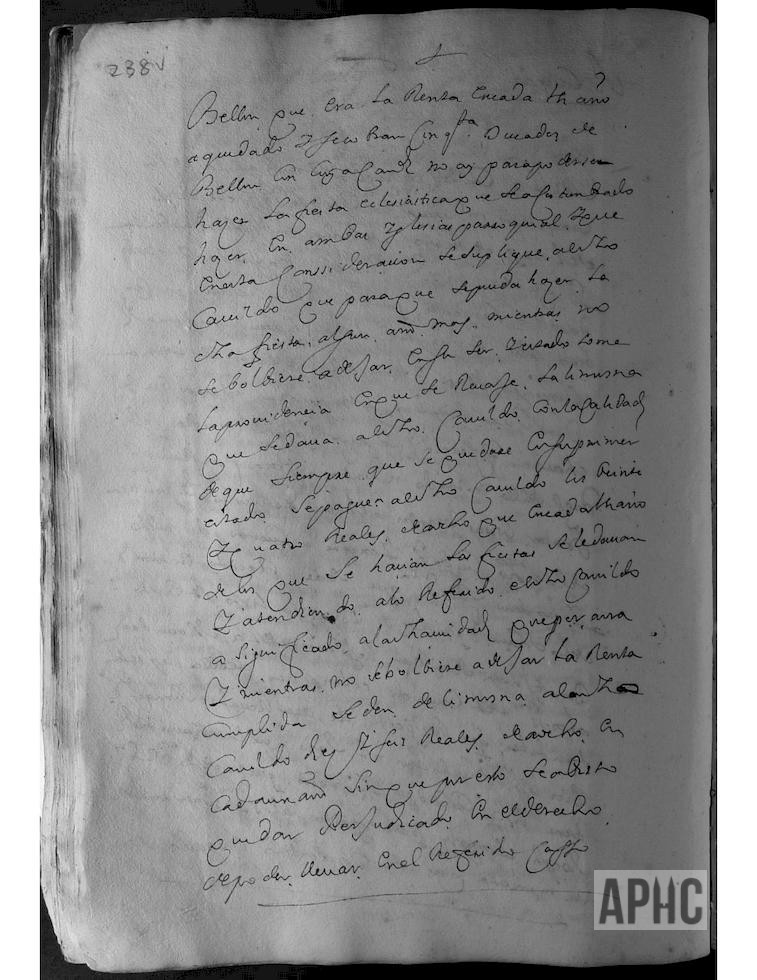 238v
Bellon que era la Renta en cada un año
a quedado Ducados de
Bellon Con Cuya Cantd no ay para poderse
hazer la fiesta eclesiastica que se a costunbrado
hazer En ambas Yglesias parroquial. Y que
En esta Conssiderazion se suplique al dho
Cauildo que para que se pueda hazer la
dha fiesta, algun año mas, mientras no
se bolbiere a dejar En su ser, Y estado tome
la prouidencia En que se Revaje la limosna
que se daua al dho Cauildo Con la Calidad
de que siempre que se quedare En su primer
estado se paguen al dho Cauildo los Veinte
Y quatro Reales, de que En cada un año
de los que se hacian las fiestas se le dauan
Y atendiendo a lo Referido el dho Cauildo
a significado a la que por aora
Y mientras no se bolbiere a dejar la Renta
Cumplida se den de limosna al dho
Cauildo diez Y seis Reales, En
cada un año sin que por esto sea visto
quedar Perjudicado En el derecho
de poder lleuar En el Referido Casso
APHC